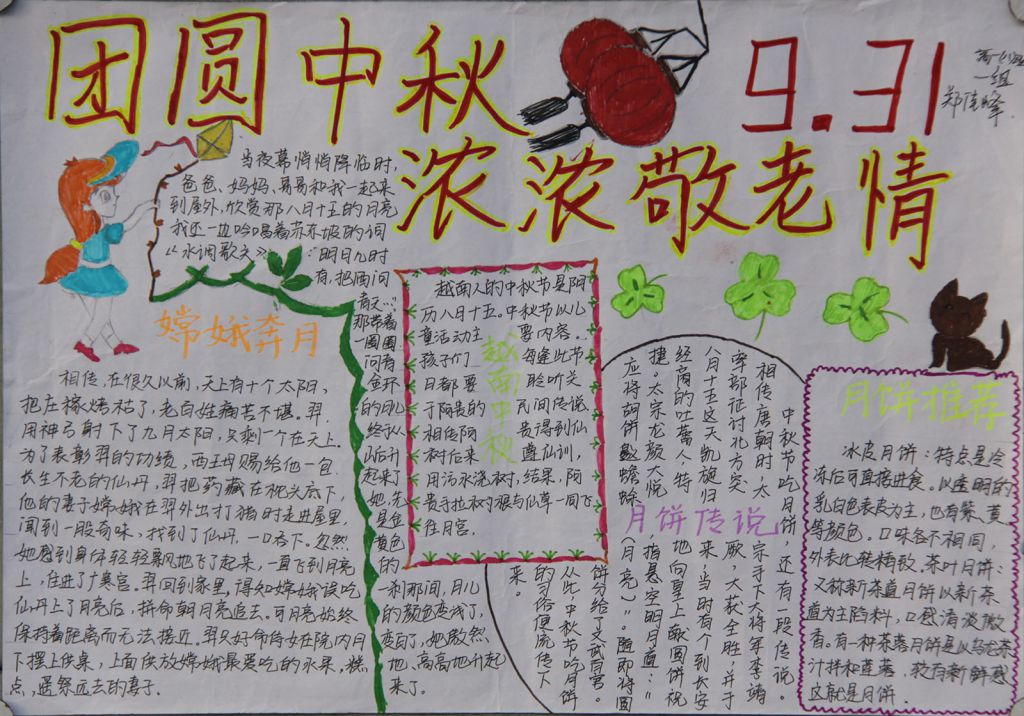 团圆中秋
浓浓敬老情
9.31
一组
当夜幕悄悄降临时,
爸爸、妈妈、哥哥和我一起来
到屋外,欣赏那八月十五的月亮
我还一边吟唱着苏东坡的词
《水调歌头》:"明日几时
有,把酒问
青天…"
那带着
一圈圈
问有
金环
的月儿
终于从
山后升
起来了
她先
是金
黄色
的
一刹那间,月儿
的颜色变浅了,
变白了,她傲然
地、高高地升起
来了。
嫦娥奔月
相传,在很久以前,天上有十个太阳,
把庄稼烤枯了,老百姓痛苦不堪。羿
用神弓射下了九月太阳,只剩一个在天上。
为了表彰羿的功绩,西王母赐给他一包
长生不老的仙丹,羿把药藏在枕头底下,
他的妻子嫦娥在羿外出打猎时走进屋里,
闻到一股奇味,找到了仙丹,一口吞下。忽然,
她感到身体轻轻飘地飞了起来,一直飞到月亮
上,住进了广寒宫。羿回到家里,得知嫦娥误吃
仙丹上了月亮后,拼命朝月亮追去。可月亮始终
保持着距离而无法接近。羿只好命侍女在院内月
下摆上供桌,上面供放嫦娥最爱吃的水果,糕
点,遥祭远去的妻子.
越南中秋
越南人的中秋节是阴
历八月十五。中秋节以儿
童活动主要内容,
孩子们每逢此节
日都要聆听关
于阿贵的民间传说
相传阿贵得到仙
树后来遵仙训,
用污水浇树,结果,阿
贵手拉树根与仙草一同飞
往月宫.
月饼传说
中秋节吃月饼,还有一段传说。
相传唐朝时,太宗手下大将军李靖
率部征讨北方突厥,大获全胜,并于
八月十五这天凯旋归来,当时有个到长安
经商的吐蕃人,特地向皇上献圆饼祝
捷。太宗龙颜大悦,指悬空明月道:"
应将胡饼邀蟾蜍(月亮)"。随即将圆
饼分给了文武百官。
从此,中秋节吃月饼
的习俗便流传下
来。
月饼推荐
冰皮月饼:特点是冷
冻后可直接进食。以透明的
乳白色表皮为主,也有紫、黄
等颜色。口味各不相同,
外表比较精致.茶叶月饼:
又称新茶道月饼以新茶
道为主陷料,口感清淡微
香。有一种茶蓉月饼是以乌龙茶
汁拌和莲蓉,较有新鲜感
这就是月饼.